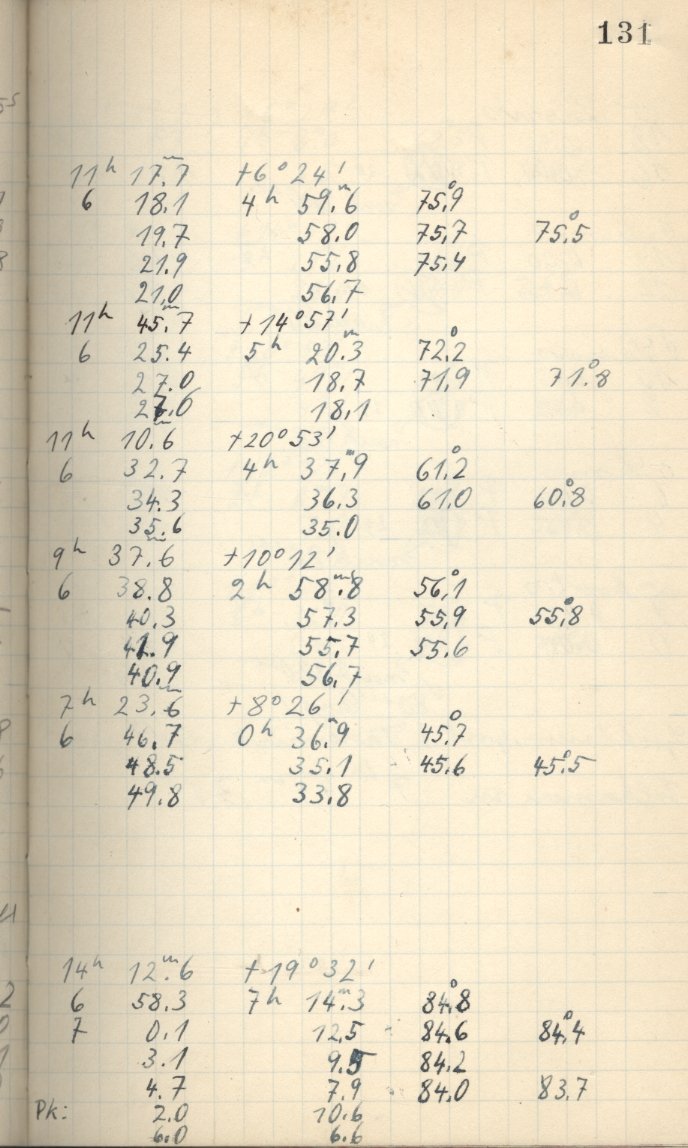 131
11ʰ 17ᵐ.7 +6° 24'
6 18.1 4ʰ 59ᵐ.6 75°.9
19.7 58.0 75.7 75°.5
21.9 55.8 75.4
21.0 56.7
11ʰ 45ᵐ.7 +14° 57'
6 25.4 5ʰ 20ᵐ.3 72°.2
27.0 18.7 71.9 71°.8
27.6 18.1
11ʰ 10ᵐ.6 +20° 53'
6 32.7 4ʰ 37ᵐ.9 61°.2
34.3 36.3 61.0 60°.8
35.6 35.0
9ʰ 37ᵐ.6 +10° 12'
6 38.8 2ʰ 58ᵐ.8 56°.1
40.3 57.3 55.9 55°.8
41.9 55.7 55.6
40.9 56.7
7ʰ 23ᵐ.6 +8° 26'
6 46.7 0ʰ 36ᵐ.9 45°.7
48.5 35.1 45.6 45°.5
49.8 33.8
14ʰ 12ᵐ.6 +19° 32'
6 58.3 7ʰ 14ᵐ.3 84°.8
7 0.1 12.5 84.6 84°.4
3.1 9.5 84.2
4.7 7.9 84.0 83.7
Pk: 2.0 10.6
6.0 6.6